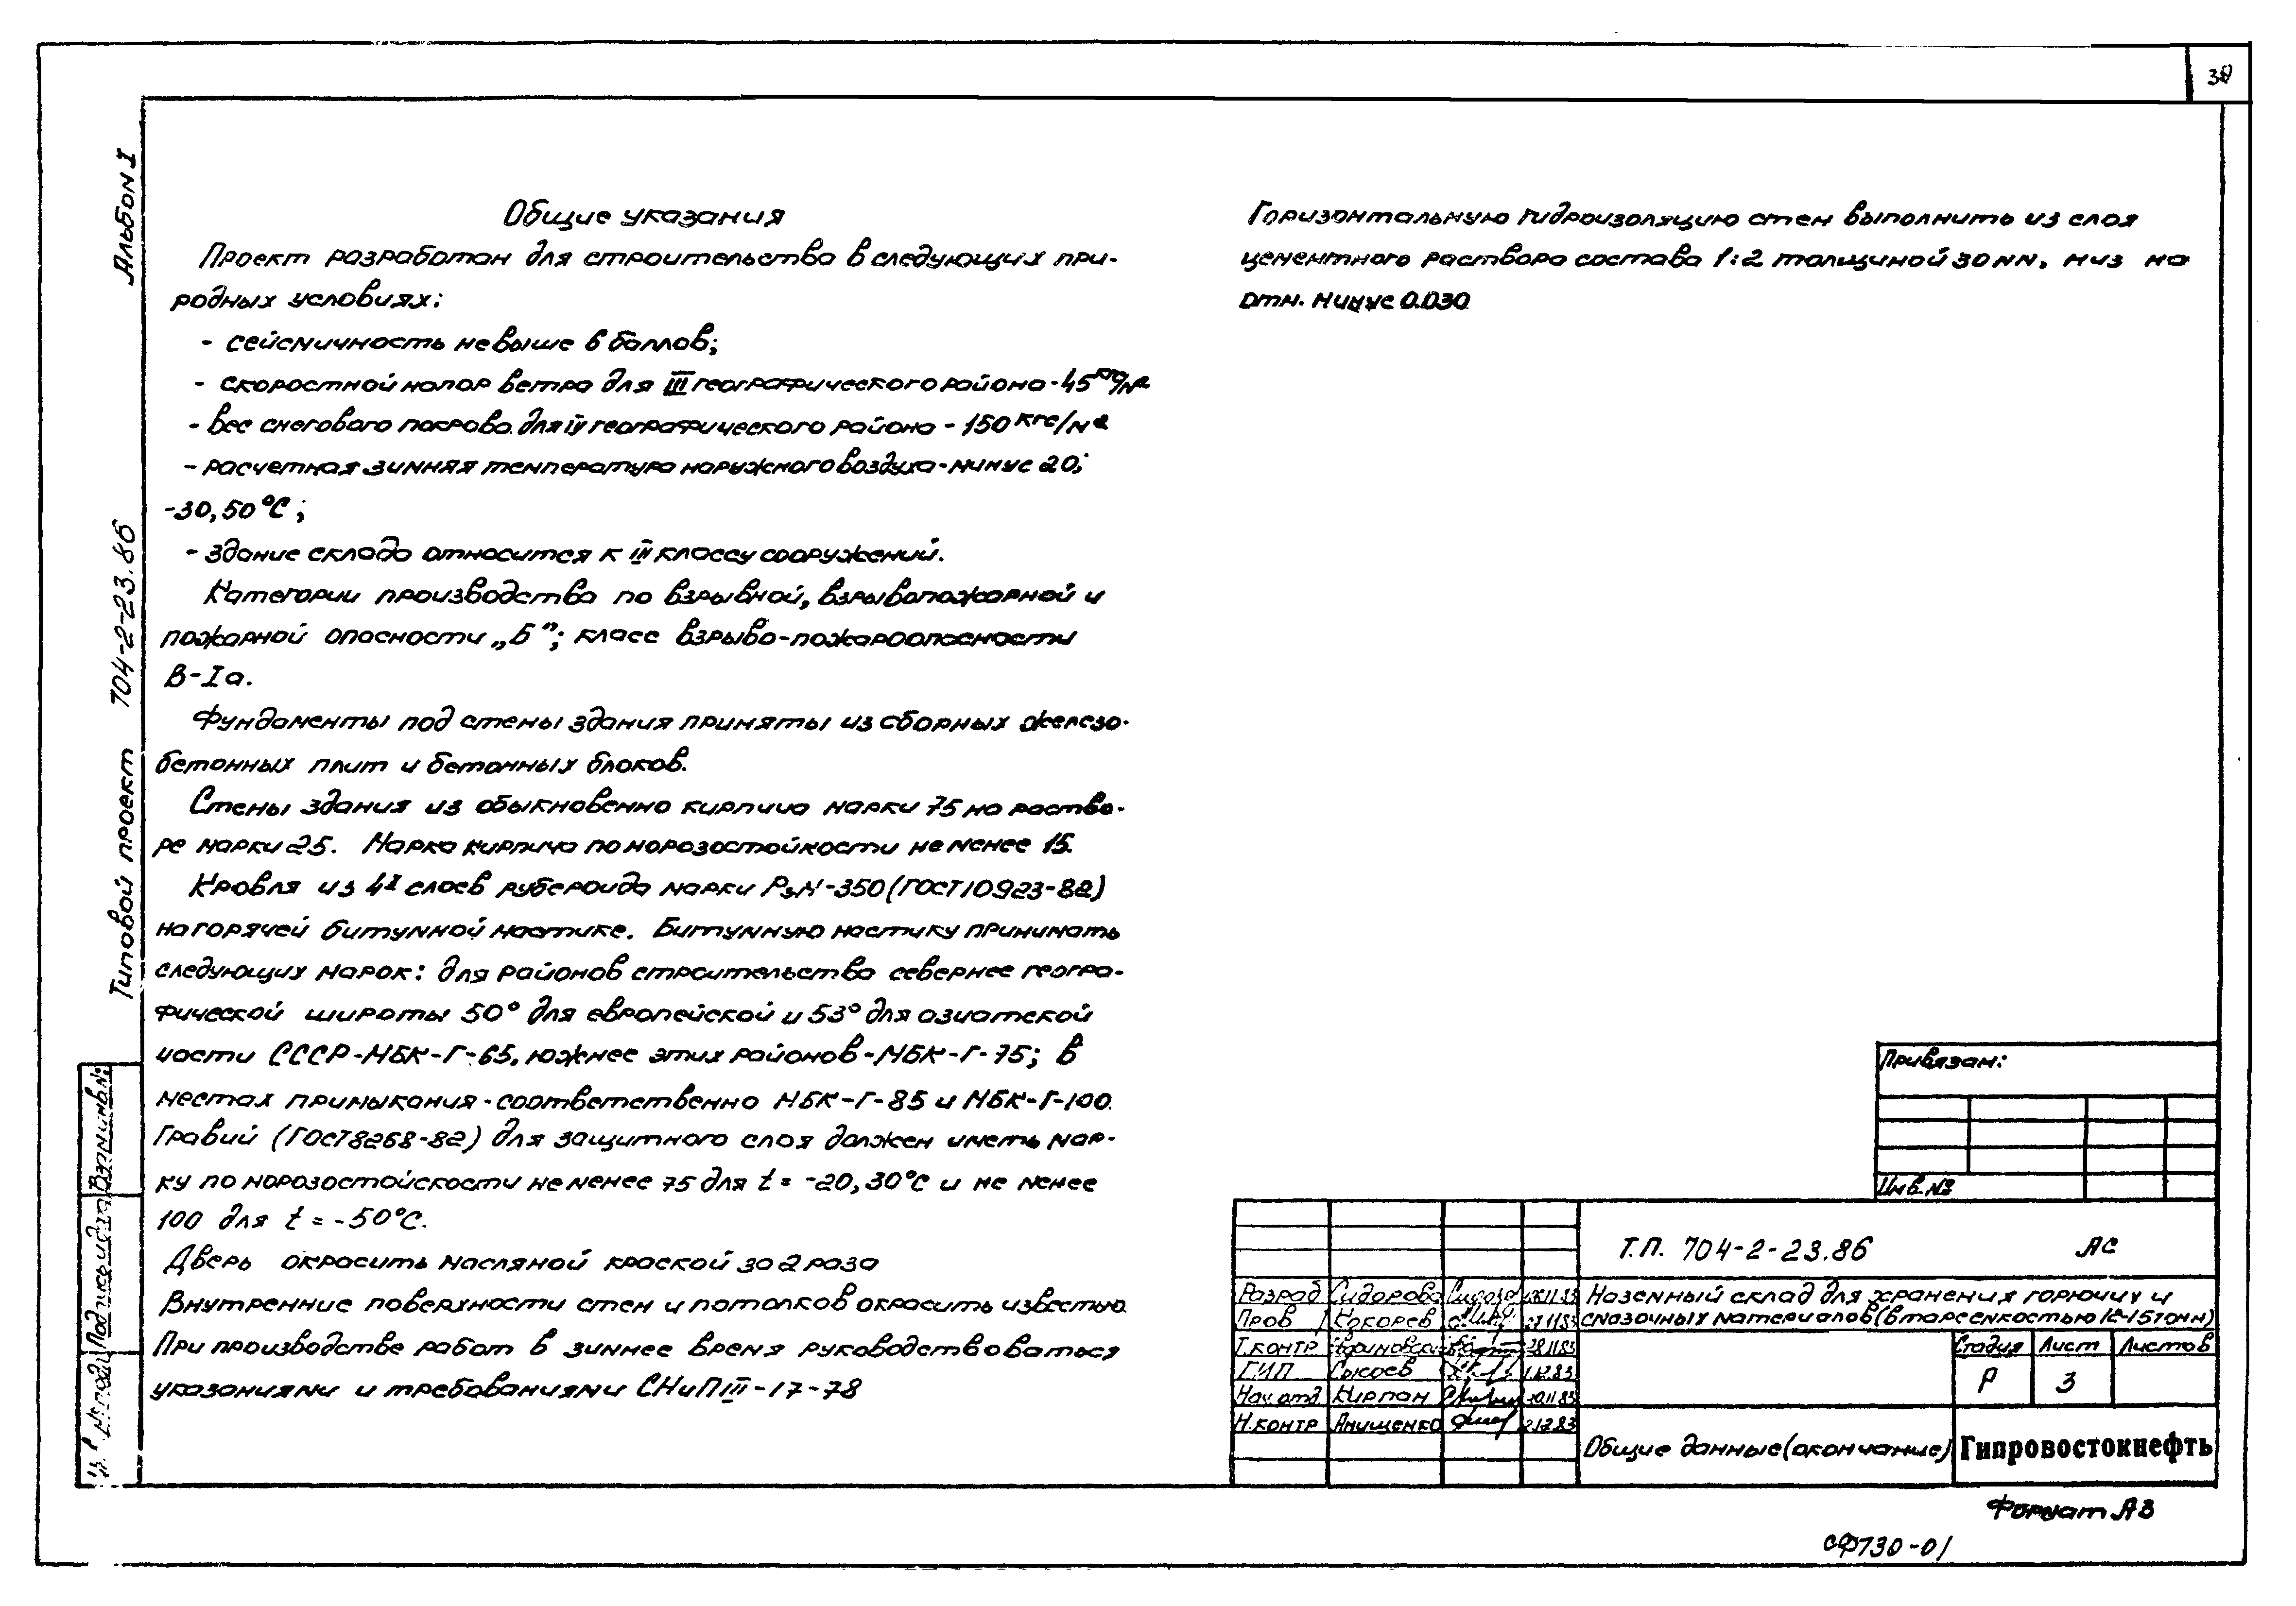 30
Альбом I
Типовой проект 704-2-23.86
Общие указания
Проект разработан для строительства в следующих при-
родных условиях:
- сейсмичность не выше 6 баллов;
- скоростной напор ветра для III географического района - 45 кгс/м2
- вес снегового покрова для IV географического района - 150 кгс/м2
- расчетная зимняя температура наружного воздуха - минус 20;
-30, 50°С;
- здание склада относится к III классу сооружений.
Категории производства по взрывной, взрывопожарной и
пожарной опасности „Б"; класс взрыво-пожароопасности
В-Iа.
Фундаменты под стены здания приняты из сборных железо-
бетонных плит и бетонных блоков.
Стены здания из обыкновенно кирпича марки 75 на раство-
ре марки 25. Марка кирпича по морозостойкости не менее 15.
Кровля из 4х слоев рубероида марки РэМ-350 (ГОСТ10923-82)
на горячей битумной мастике. Битумную мастику принимать
следующих марок: для районов строительства севернее геогра-
фической широты 50° для европейской и 53° для азиатской
части СССР-МБК-Г-65, южнее этих районов-МБК-Г-75; в
местах примыкания - соответственно МБК-Г-85 и МБК-Г-100.
Гравий (ГОСТ8268-82) для защитного слоя должен иметь мар-
ку по морозостойкости не менее 75 для t = -20, 30°С и не менее
100 для t = -50°С.
Дверь окрасить масляной краской за 2 раза
Внутренние поверхности стен и потолков окрасить известью.
При производстве работ в зимнее время руководствоваться
указаниями и требованиями СНиП III-17-78
Горизонтальную гидроизоляцию стен выполнить из слоя
цементного раствора состава 1:2 толщиной 30 мм, низ на
отм. минус 0.030
Привязан:
Инв.№
Т.П. 704-2-23.86 АС
Наземный склад для хранения горючих и
смазочных материалов (в таре емкостью 12-15 тонн)
Разраб Сидорова 28.11.83
Пров Кокорев
Т.контр 28.11.83
ГИП Сысоев 1.12.83
Нач.отд. Кирпан
Н.контр Анищенко 2.12.83
Стадия Лист Листов
Р 3
Общие данные (окончание)
Гипровостокнефть
Взам.инв.№
Подпись и дата
Формат А3
СФ730-01